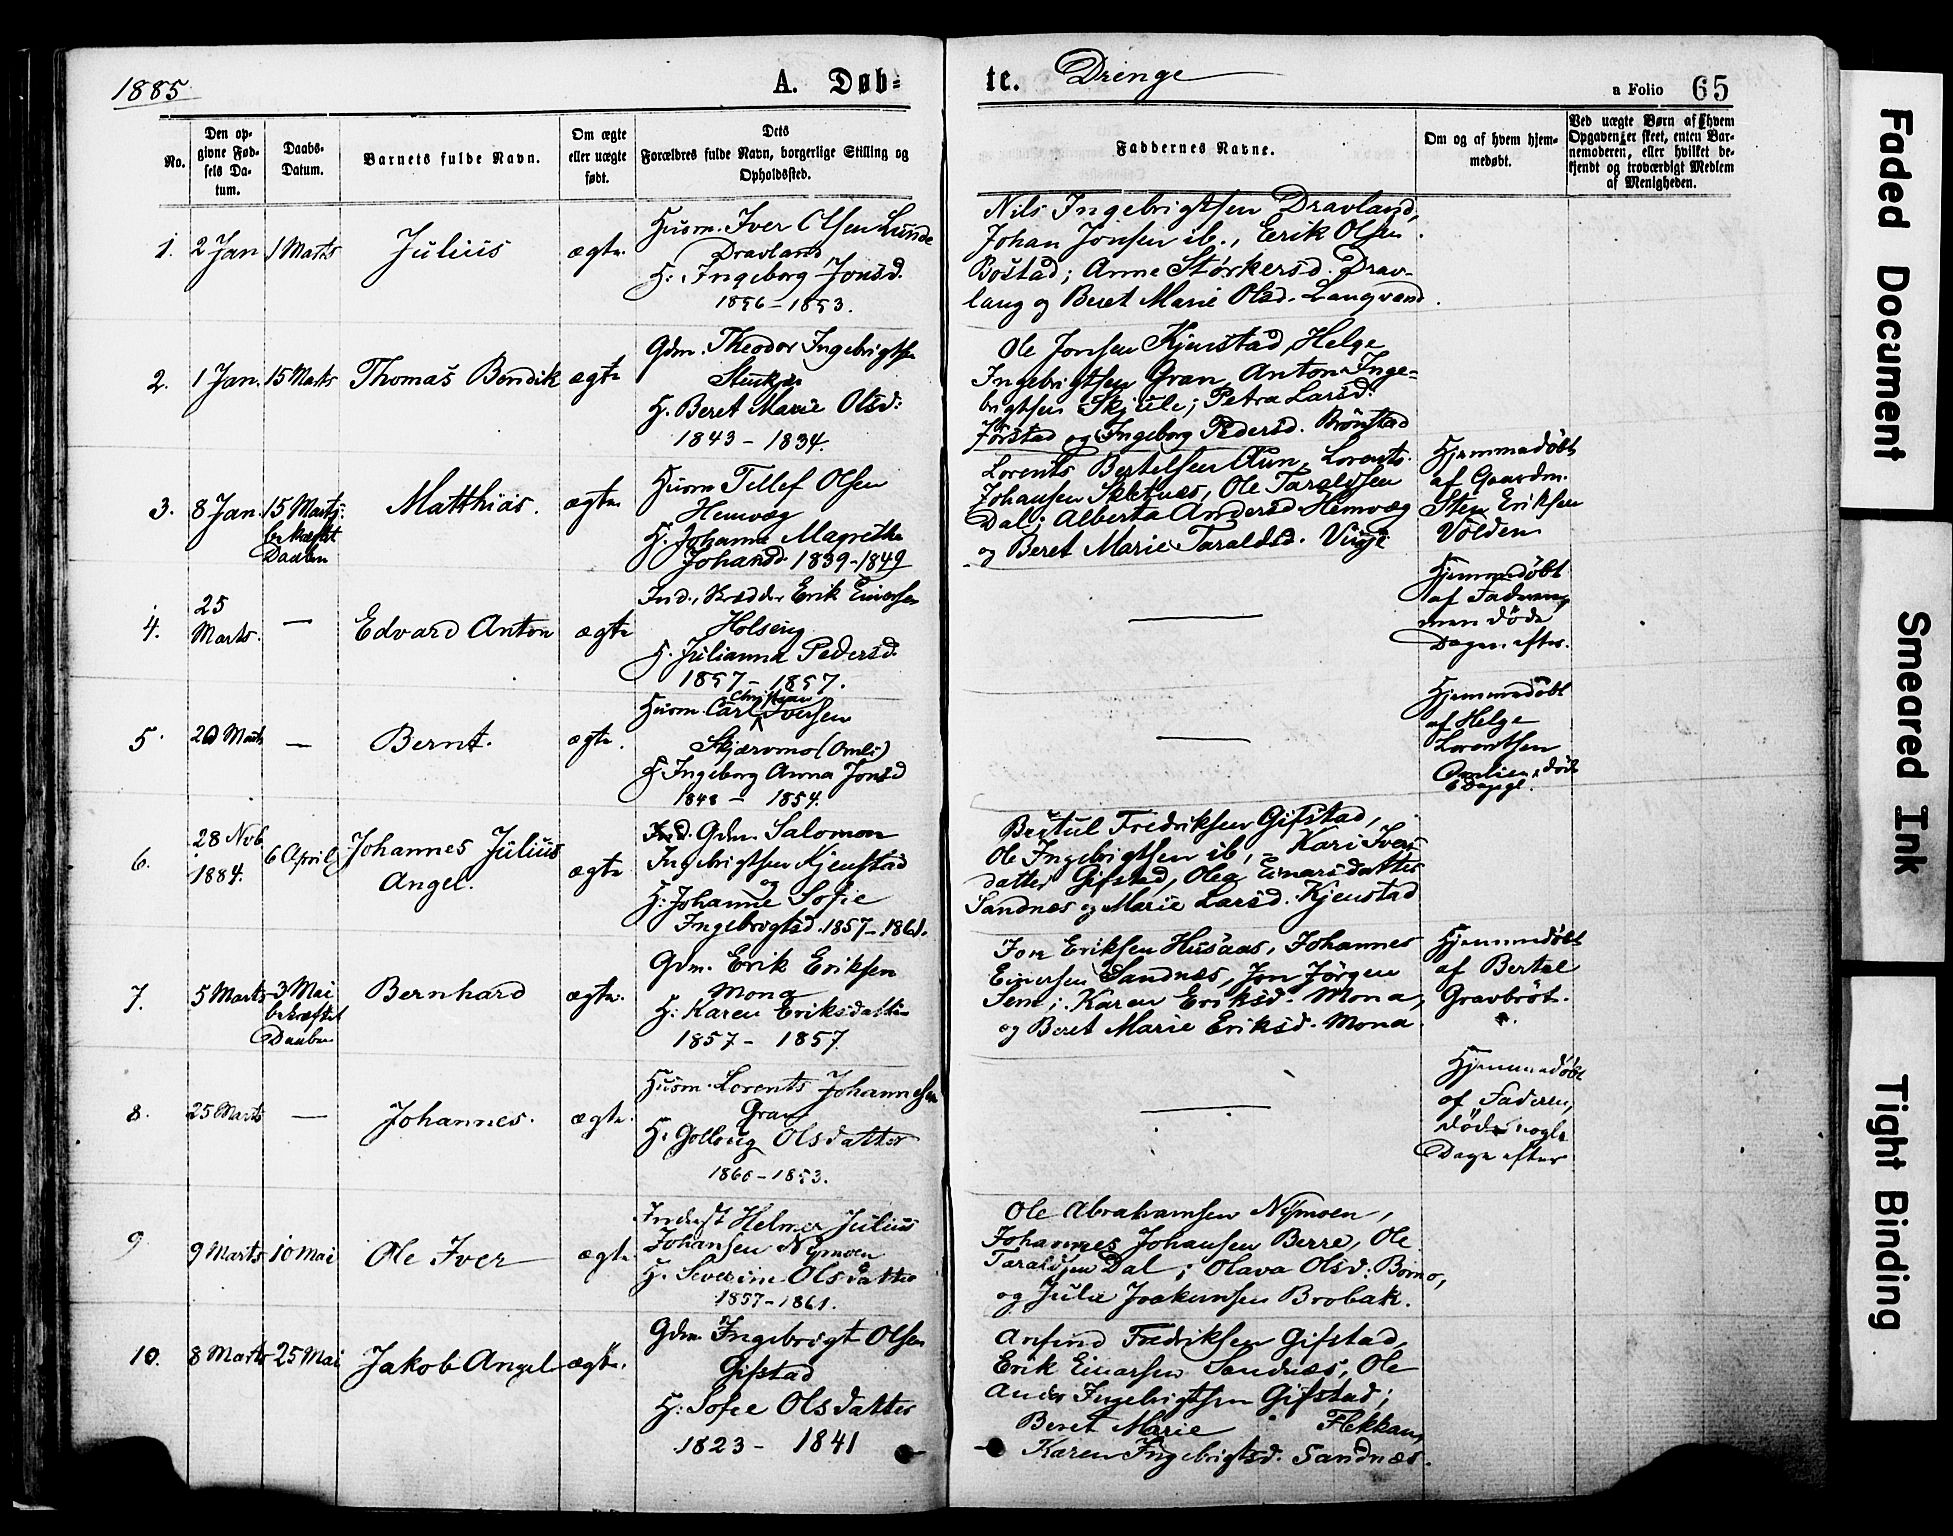 1885
A. Døb-
te. Drenge
a Folio 65
No.
Den op-
givne Fød-
sels Da-
tum.
Daabs-
Datum.
Barnets fulde Navn.
Om ægte
eller uægte
født.
Dets
Forældres fulde Navn, borgerlige Stilling og
Opholdssted.
Faddernes Navne.
Om og af hvem hjem-
medøbt.
Ved uægte Børn af hvem
Opgaven er skeet, enten Bar-
nemoderen, eller hvilket be-
kjendt og troværdigt Medlem
af Menigheden.
1. 2 Jan 1 Marts Julius ægte
Husm. Iver Olsen Lunde
Dravland
H. Ingeborg Jonsd.
1856-1853.
Nils Ingebrigtsen Dravland,
Johan Jonsen ib., Erik Olsen
Bostad; Anne Størkersd. Drav-
lang og Beret Marie Olsd. Langvand.
2. 1 Jan. 15 Marts Thomas Bendik ægte
Gdm. Theodor Ingebrigtsen
H. Beret Marie Olsd:
1843 - 1834.
Ole Jonsen Kjenstad, Helge
Ingebrigtsen Gran, Anton Inge-
brigtsen Skjule; Petra Larsd.
Førstad og Ingeborg Pedersd. Brønstad
3. 8 Jan. 15 Marts: Matthias. ægte
bekræftet
Daaben
Husm Tellef Olsen
Hemvæg
H. Johanna Magrethe
Johansd 1839-1849
Lorents Bertelsen Aun, Lorents
Johansen Skletnæs, Ole Taraldsen
Dal; Alberta Andersd Hemvæg
og Beret Marie Taraldsd.
Hjemmedøbt
af Gaardm.
Sten Eriksen
Volden
4. 25
Marts. — Edvard Anton ægte
Ind., Skrædder Erik Einersen
Holsing
H. Julianna Pedersd.
1857-1857.
—
Hjemmedøbt
af Faderen,
men døde
Dagen efter.
5. 20 Marts — Bernt. ægte.
Christian
Husm. Carl Iversen
Skjærvmo (Omli)
H Ingeborg Anna Jonsd
1848 - 1854.
—
Hjemmedøbt
af Helge
Lorentsen
Omlien, død
6 Dage gl.
6. 28 Nvb 1884. 6 April Johannes Julius
Angel. ægte
Ind. Gdm. Salomon
Ingebrigtsen Kjenstad
og
H: Johanne Sofie
Ingebrigtsd. 1857-1861.
Bertul Fredriksen Gifstad,
Ole Ingebrigtsen ib, Kari Ivers-
datter Gifstad, Olea Einarsdatter
Sandnes og Marie Larsd. Kjenstad
7. 5 Marts 3 Mai Bernhard ægte.
bekræftet
Daaben
Gdm. Erik Eriksen
Mona
H: Karen Eriksdatter
1857 - 1857
Jon Eriksen Husaas, Johannes
Einersen Sandnæs, Jon Jørgen
Sem; Karen Eriksd. Mona,
og Beret Marie Eriksd. Mona.
Hjemmedøbt
af Bertel
Gravbrøt.
8. 25 Marts — Johannes. ægte.
Husm. Lorents Johannesen
Gran
H. Gollaug Olsdatter
1860-1853.
—
Hjemmedøbt
af Faderen,
døde nogle
Dage efter
9 9 Marts 10 Mai Ole Iver ægte
Inderst Helmer Julius
Johansen Nymoen
H. Severine Olsdatter
1857-1861.
Ole Abrahamsen Nymoen,
Johannes Johansen Berre, Ole
Taraldsen Dal; Olava Olsd: Bomo,
og Julie Joakumsen Brobak.
10. 8 Marts 25 Mai Jakob Angel ægte.
Gdm. Ingebrigt Olsen
Gifstad
H: Sofie Olsdatter
1823 - 1841
Anfind Fredriksen Gifstad,
Erik Einarsen Sandnæs, Ole
Ander Ingebrigtsen Gifstad;
Beret Marie Flekkan,
Karen Ingebrigtsd. Sandnæs.
Faded Document
Smeared Ink
Tight Binding